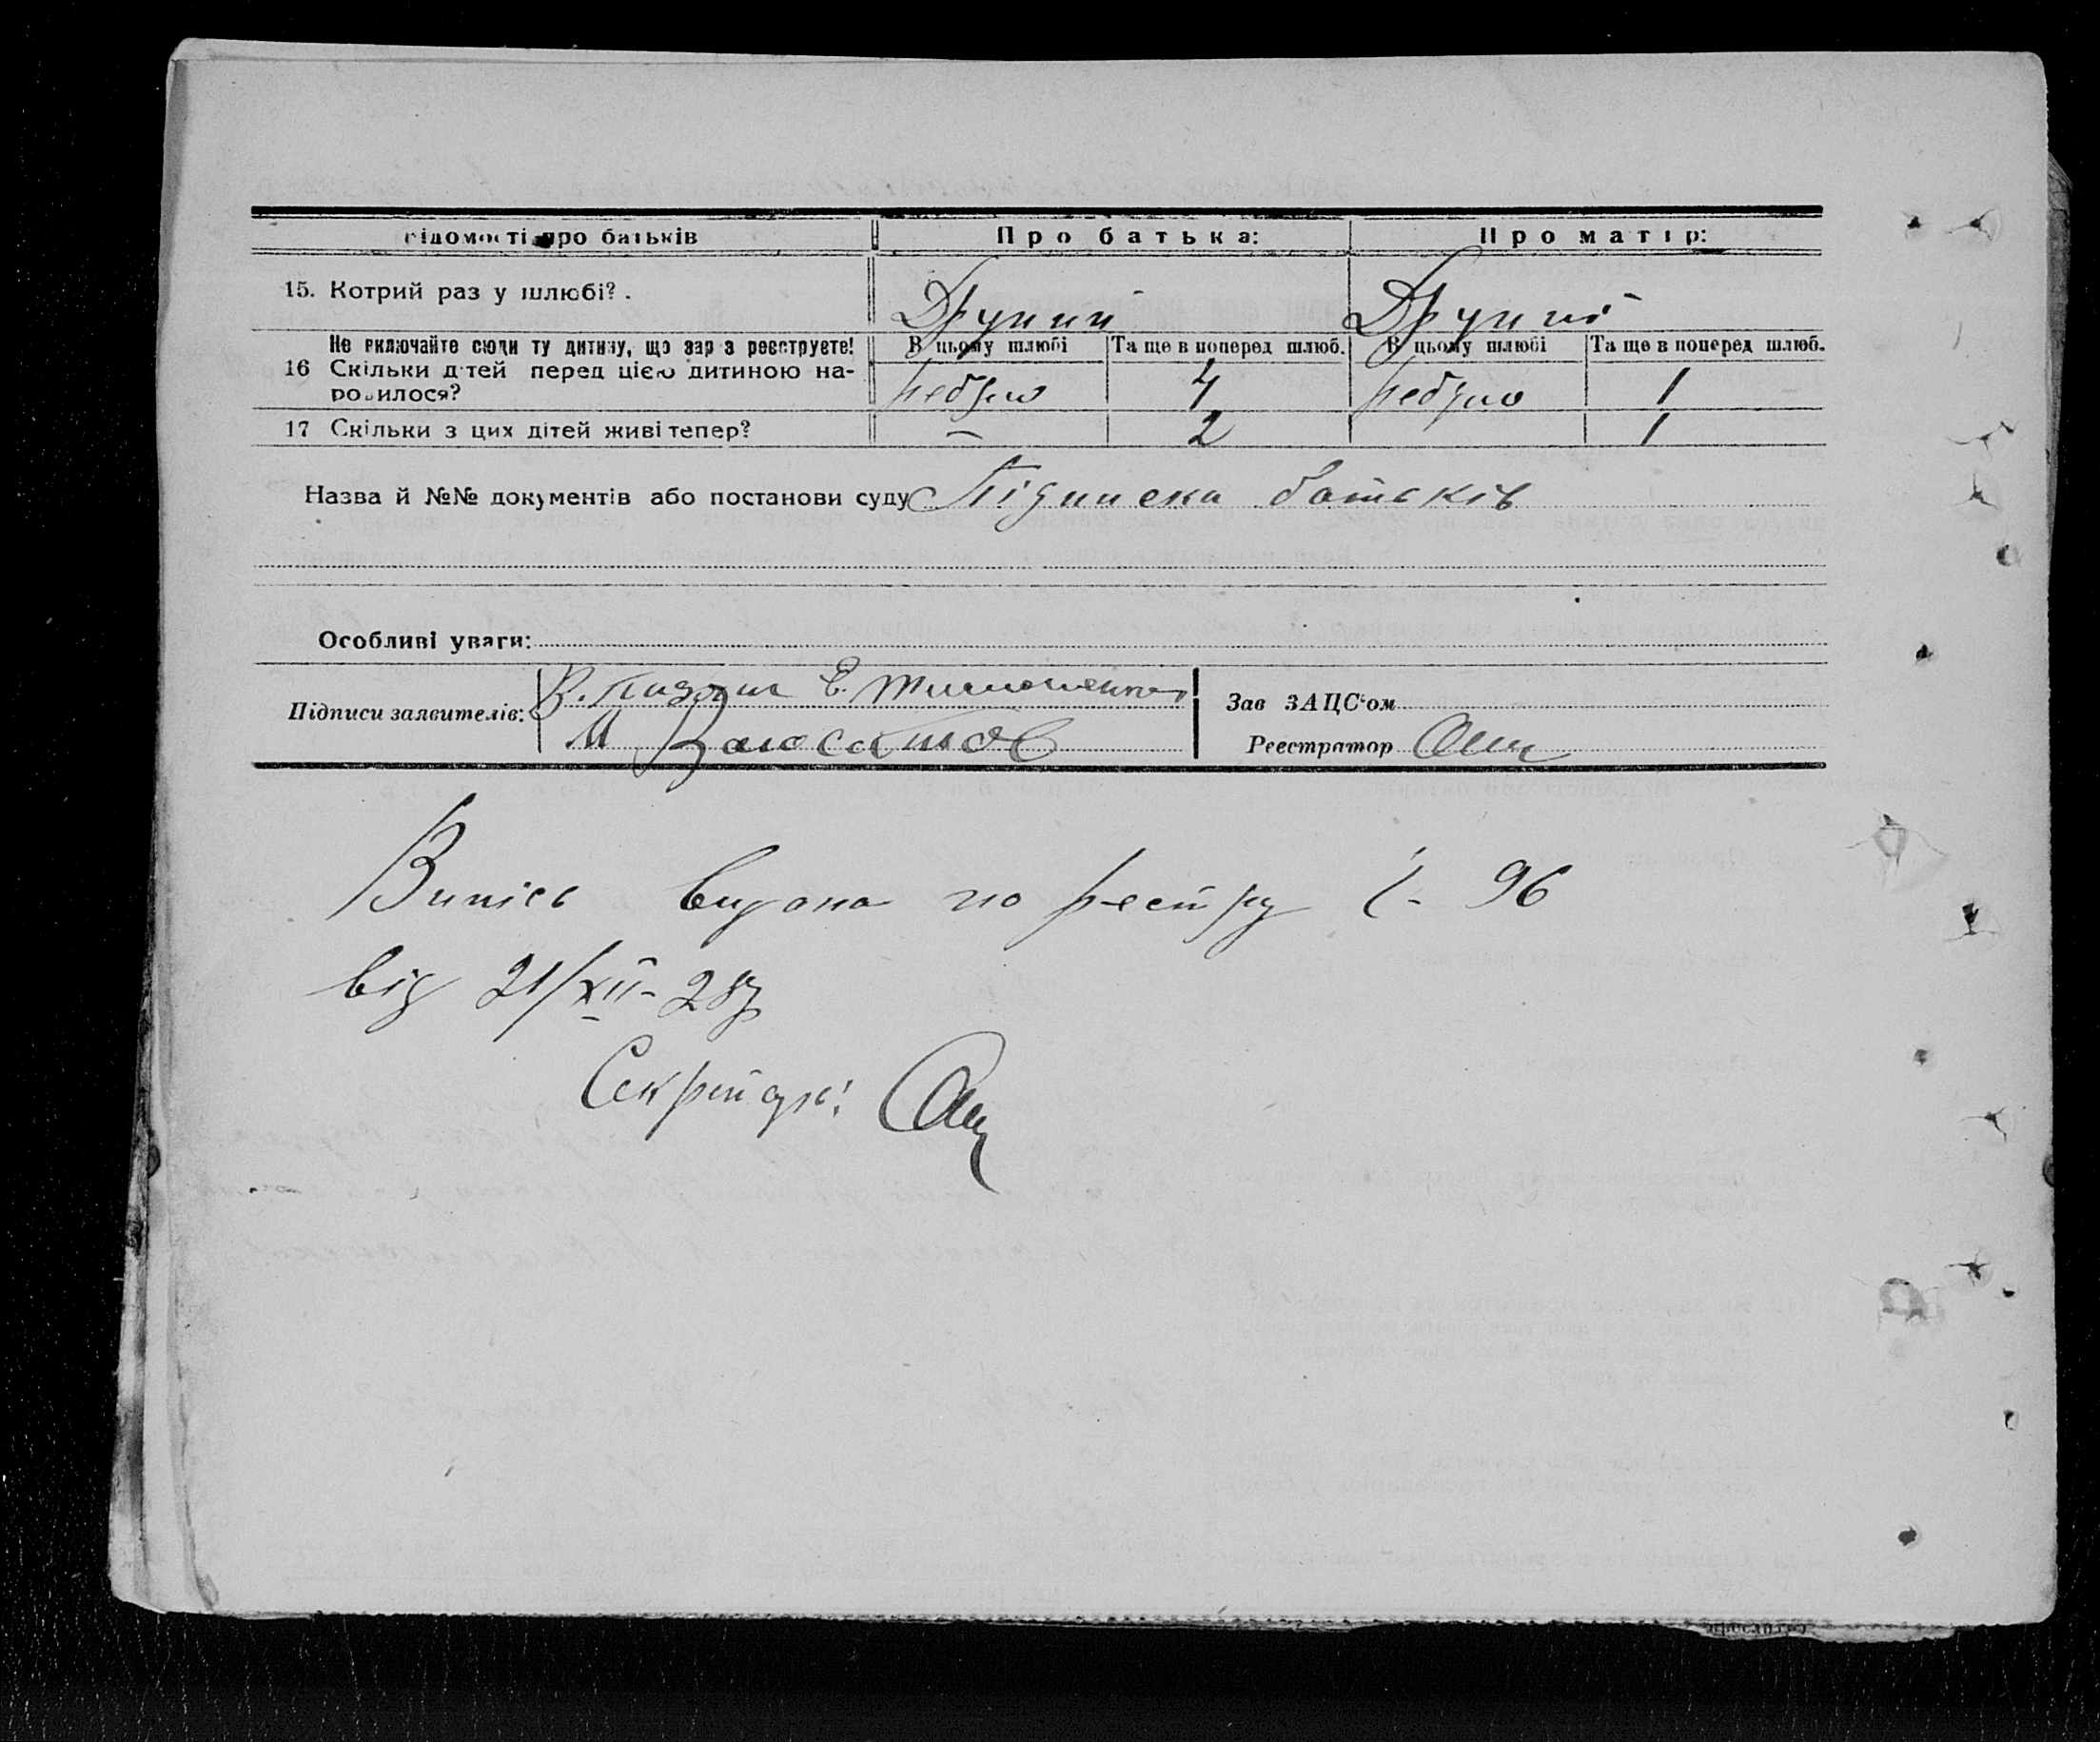 Відомості про батьків Про батька: Про матір:
15. Котрий раз у шлюбі?. Другий Другий
Не включайте сюди ту дитину, що зараз реєструєте! В цьому шлюбі Та ще в поперед шлюб. В цьому шлюбі Та ще в поперед шлюб.
16 Скільки дітей перед цією дитиною на-
родилося? не було 4 не було 1
17 Скільки з цих дітей живі тепер? — 2 1
Назва й №№ документів або постанови суду Підписка батьків
Особливі уваги:
Підписи заявителів: Е. Тимошенко
М
Зав ЗАЦС'ом
Реєстратор
Випісь видана по реєстру 96
від 21/XII-28р
Секретарь: